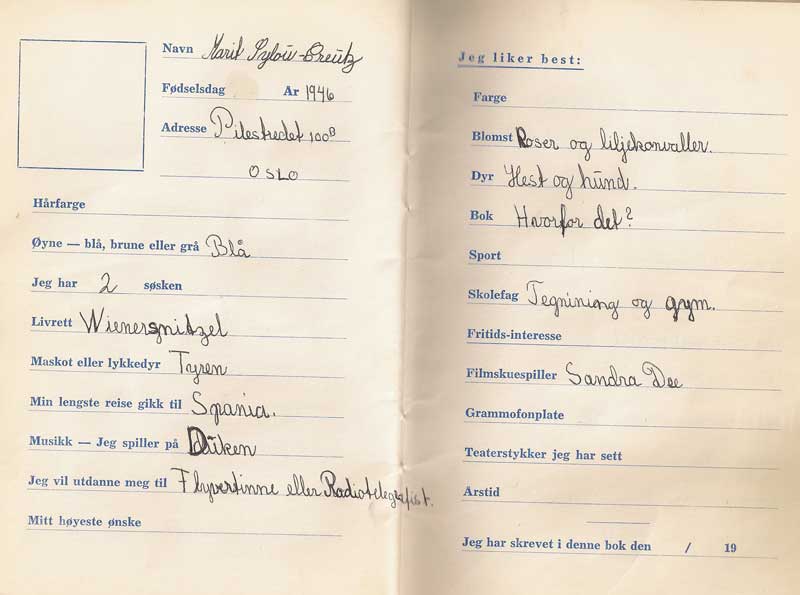 Navn Marit Sylou-Creutz
Fødselsdag År 1946
Adresse Pilestredet 100B
OSLO
Hårfarge
Øyne — blå, brune eller grå Blå
Jeg har 2 søsken
Livrett Wienersnitzel
Maskot eller lykkedyr Tyren
Min lengste reise gikk til Spania.
Musikk — Jeg spiller på Duken
Jeg vil utdanne meg til Flyvertinne eller Radiotelegrafist.
Mitt høyeste ønske
Jeg liker best:
Farge
Blomst Roser og liljekonvaller.
Dyr Hest og hund.
Bok Hvorfor det?
Sport
Skolefag Tegnining og gym.
Fritids-interesse
Filmskuespiller Sandra Dee
Grammofonplate
Teaterstykker jeg har sett
Årstid
Jeg har skrevet i denne bok den / 19